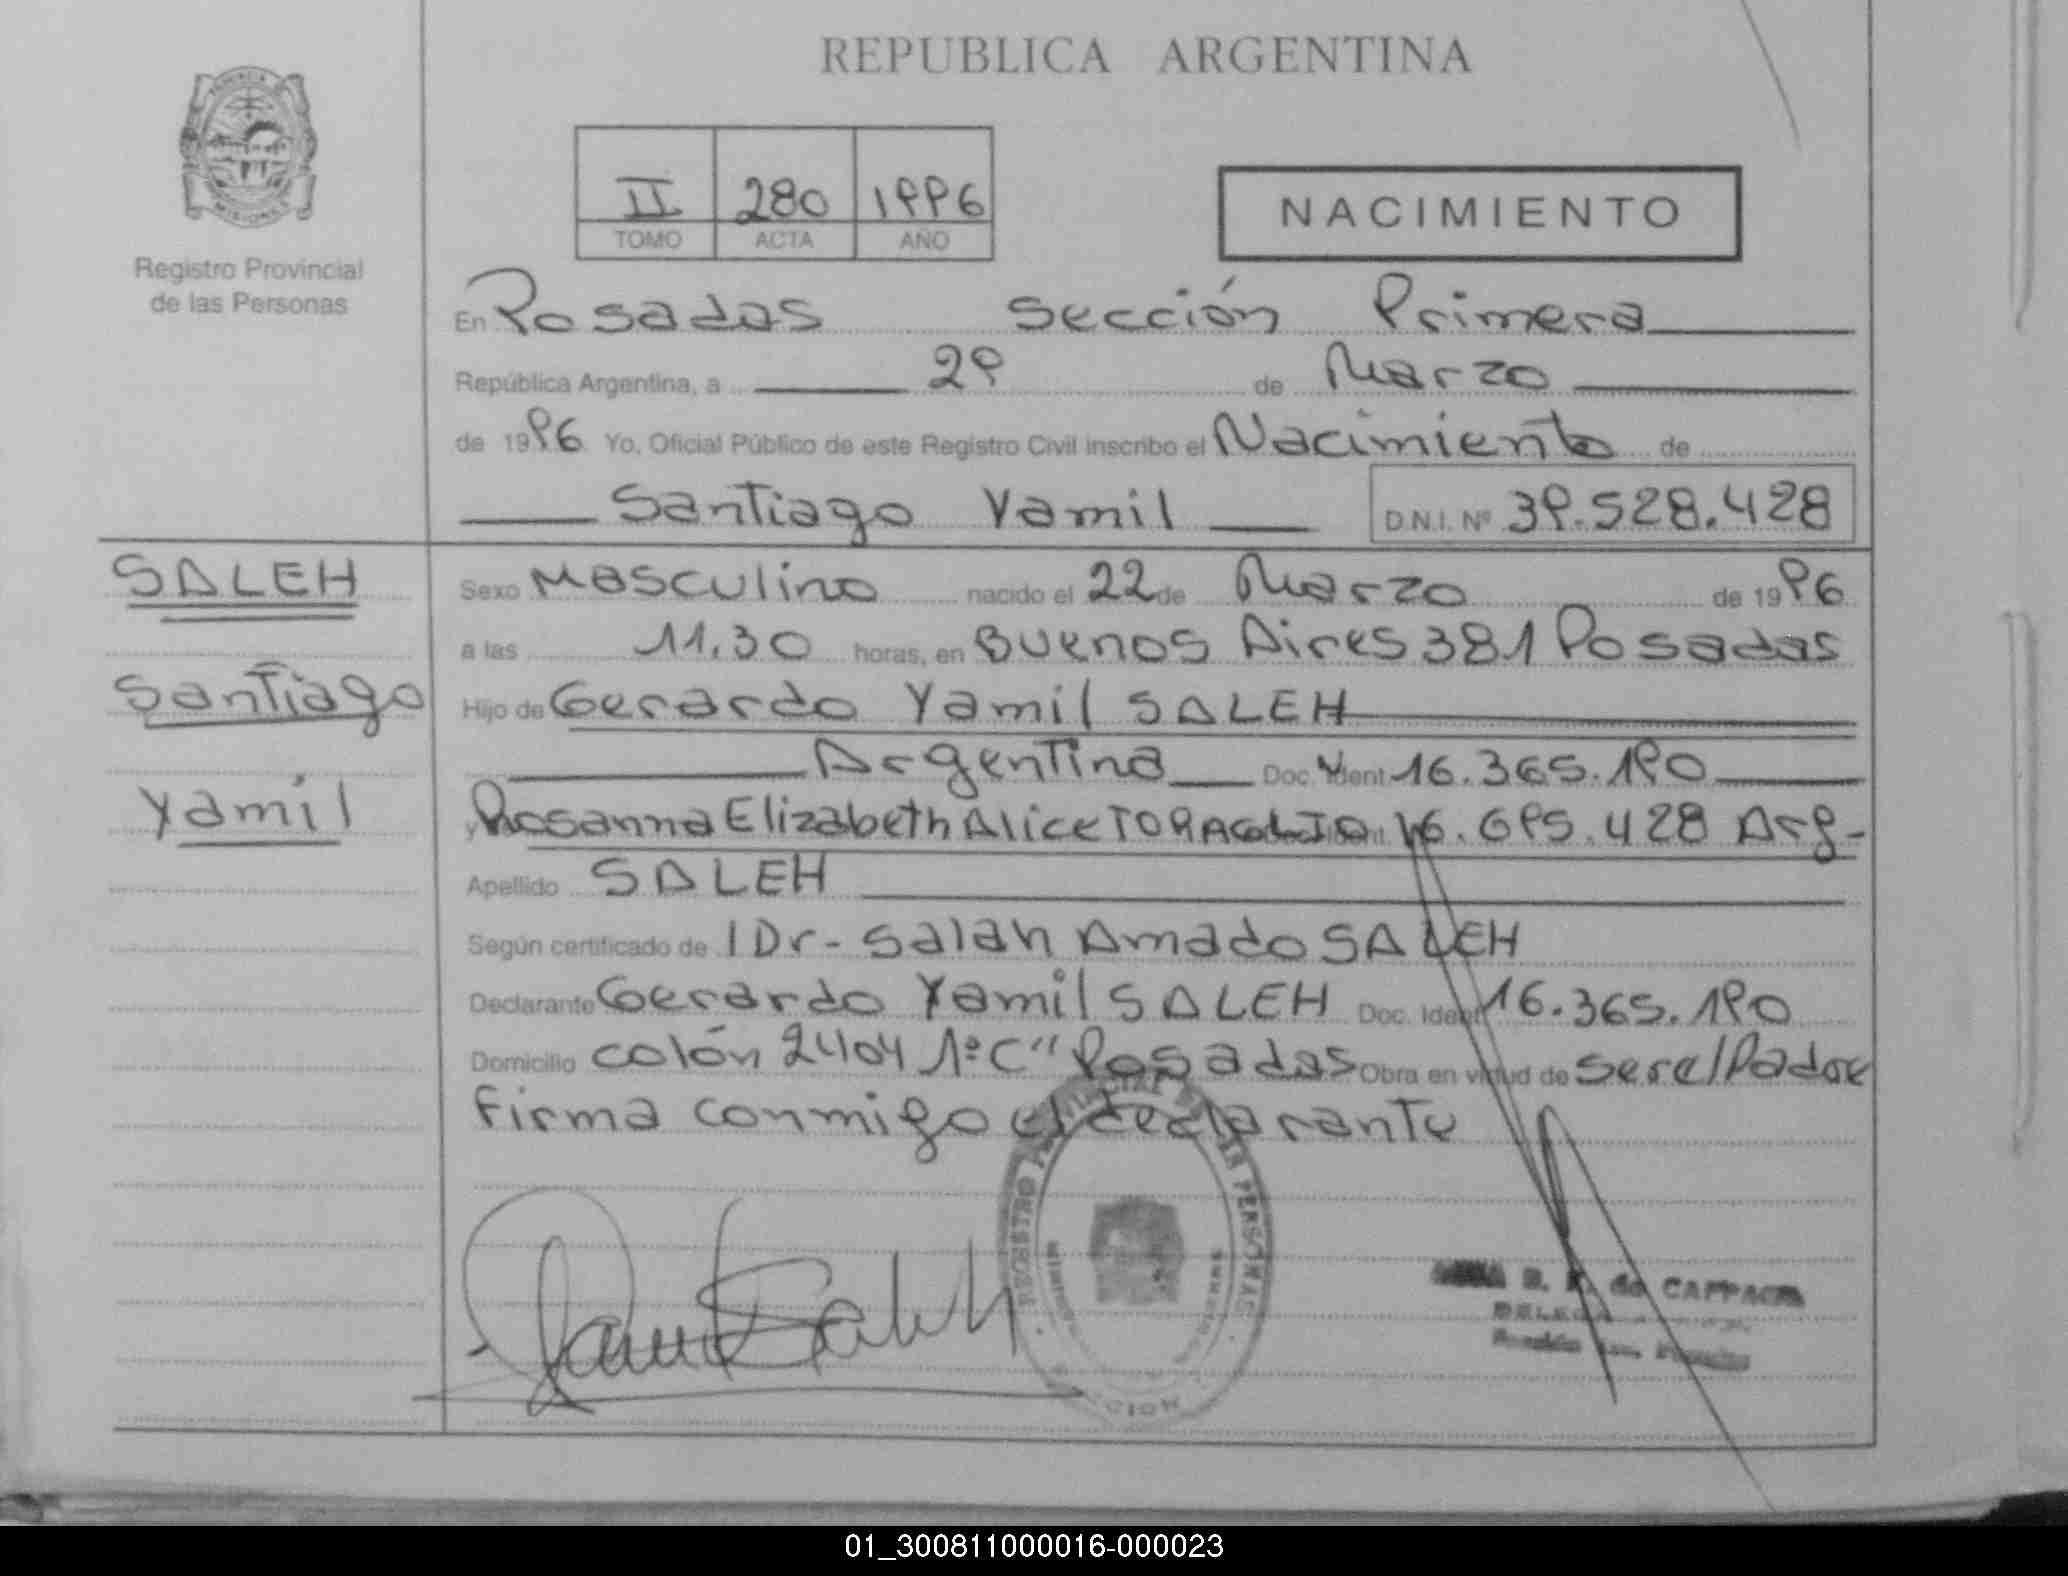 REPUBLICA ARGENTINA
II 280 1996
TOMO ACTA AÑO
NACIMIENTO
MISIONES
Registro Provincial
de las Personas
En Posadas Sección Primera
República Argentina, a 29 de Marzo
de 1996 Yo, Oficial Público de este Registro Civil inscribo el Nacimiento de
Santiago Yamil D.N.I. Nº 39.528.428
SALEH
Santiago
Yamil
Sexo Masculino nacido el 22 de Marzo de 1996
a las 11.30 horas, en Buenos Aires 381 Posadas
Hijo de Gerardo Yamil SALEH
Argentina Doc. Ident. 16.365.190
y Rosanna Elizabeth Alice 16.695.428 Arg-
Apellido SALEH
Según certificado de 1 Dr- Salah Amado SALEH
Declarante Gerardo Yamil SALEH Doc. Ident. 16.365.190
Domicilio colón 2404 1º C" Posadas Obra en virtud de ser el Padre
Firma conmigo el declarante
REGISTRO PROVINCIAL DE LAS PERSONAS
de CAPPACE
01_300811000016-000023